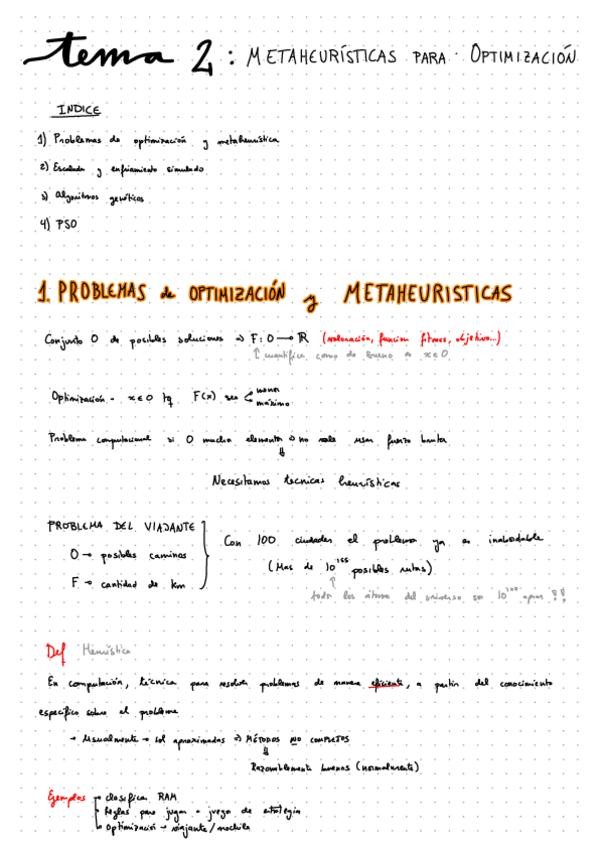 tema 2: METAHEURÍSTICAS PARA OPTIMIZACIÓN
INDICE
1) Problemas de optimización y metaheurística
2) Escalada y enfriamiento simulado
3) Algoritmos genéticos
4) PSO
1. PROBLEMAS de OPTIMIZACIÓN y METAHEURISTICAS
Conjunto O de posibles soluciones → F: O → ℝ (valoración, función fitness, objetivo...)
↑ cuantifica como de bueno es x∈O
Optimización - x∈O tq F(x) sea < menor
máximo
Problema computacional si O mucho elementos → no vale usar fuerza bruta
⇓
Necesitamos tecnicas heurísticas
PROBLEMA DEL VIAJANTE
O → posibles caminos
F → cantidad de km
Con 100 ciudades el problema ya es inabordable
(Mas de 10¹⁵⁵ posibles rutas)
↑
todos los átomos del universo son 10¹⁰⁰ aprox !!
Def Heurística
En computación, técnica para resolver problemas de manera eficiente, a partir del conocimiento
específico sobre el problema
→ Usualmente → sol aproximadas → MÉTODOS NO COMPLETOS
⇓
Razonablemente buenos (normalmente)
Ejemplos → clasificar RAM
→ Reglas para jugar a juego de estrategia
→ Optimización → viajante/mochila